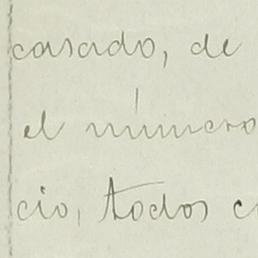 casado, de
el número
cio, todos